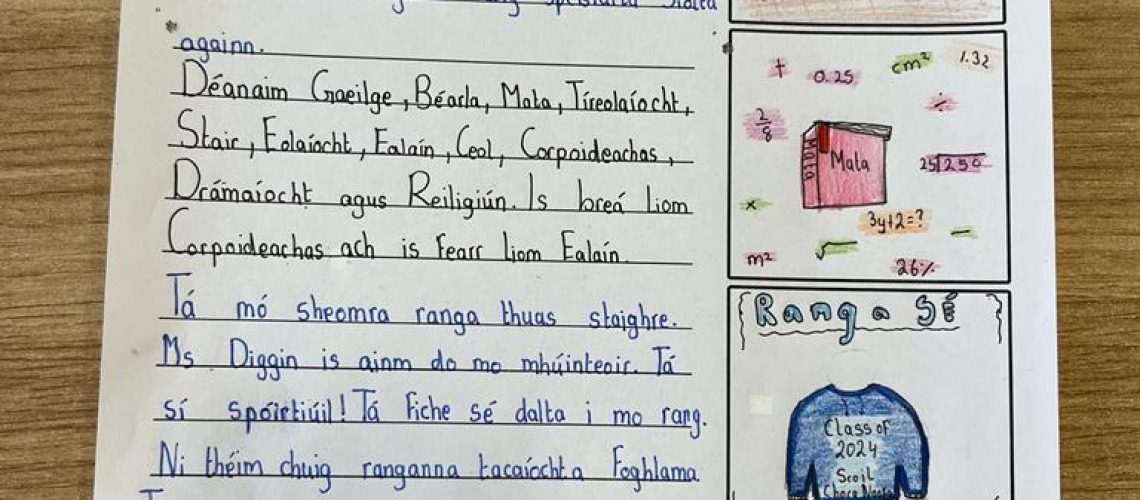 againn.
Déanaim Gaeilge, Béarla, Mata, Tíreolaíocht,
Stair, Eolaíocht, Ealaín, Ceol, Corpoideachas,
Drámaíocht agus Reiligiún. Is breá liom
Corpoideachas ach is fearr liom Ealaín.
Tá mó sheomra ranga thuas staighre.
Ms Diggin is ainm do mo mhúinteoir. Tá
sí spóirtiúil! Tá fiche sé dalta i mo rang.
Ni théim chuig ranganna tacaíochta foghlama
+ 0.25 cm² 1.32
2/8 ÷
Mata Mata 25)250
× 3y+2=? −
m² √ 26%
Rang a Sé
Class of
2024
Scoil